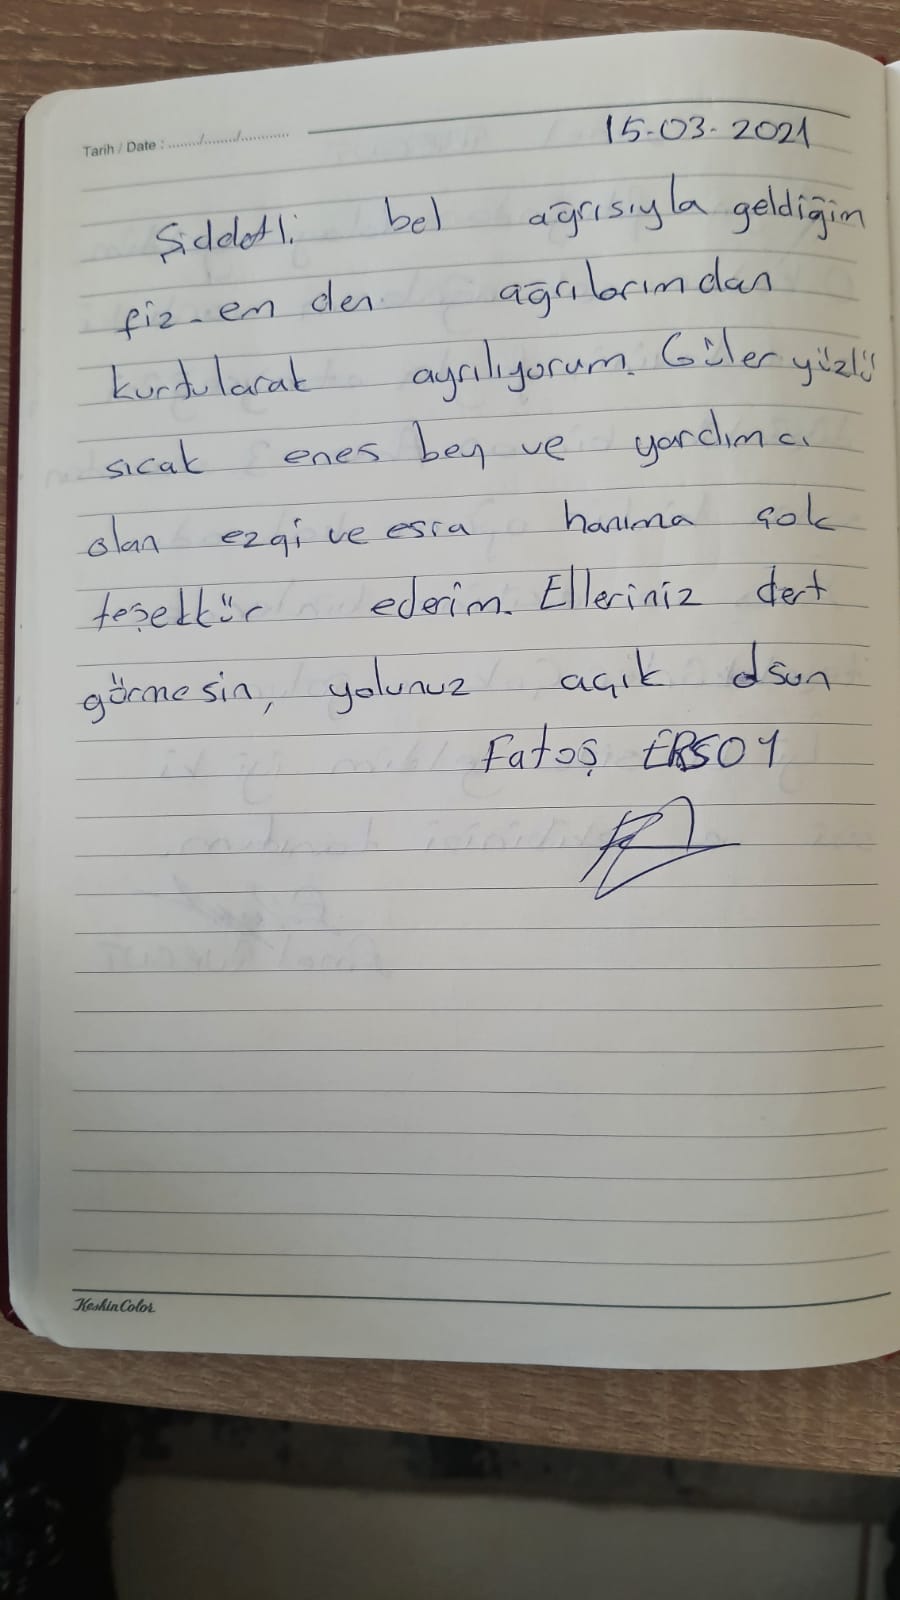 Tarih / Date : ......./......../............
15-03-2021
Şiddetli bel ağrısıyla geldiğim
fiz-em den ağrılarımdan
kurtularak ayrılıyorum. Güler yüzlü
sıcak enes bey ve yardımcı
olan ezgi ve esra hanıma çok
teşekkür ederim. Elleriniz dert
görmesin, yolunuz açık olsun
Fatoş ERSOY
KeskinColor